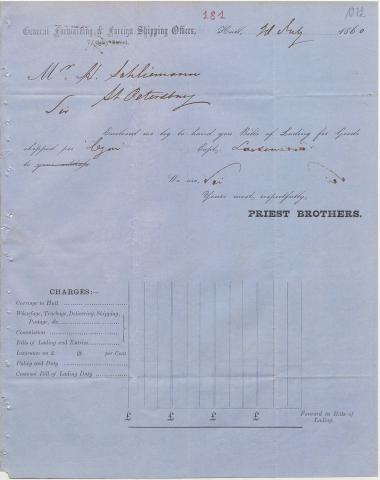 181
General Forwarding & Foreign Shipping Offices,
Hull, 21 July 1860
Mr. H. Schliemann
St Petersburg
Sir
Enclosed we beg to hand you Bills of Lading for Goods
shipped per Capt.
to your
We are, Sir
Yours most respectfully,
PRIEST BROTHERS.
CHARGES:—
Carriage to Hull
Wharfage, Trackage, Delivering, Shipping,
Postage, &c.
Commission
Bills of Lading and Entries
Insurance on £ @ per Cent
Policy and Duty
Consend Bill of Lading Duty
£ £ £ £ Forward in Bills of
Lading.